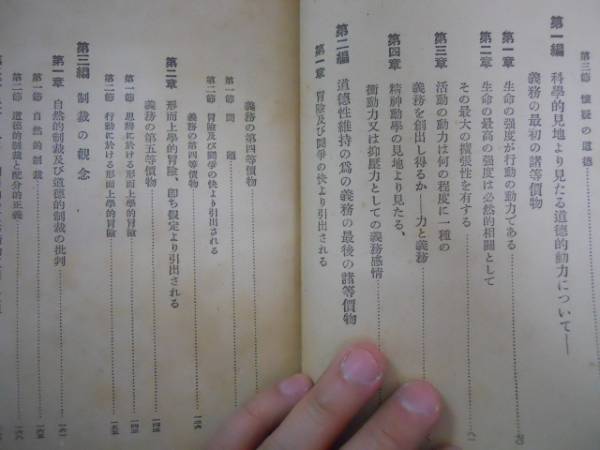 第三節 懷疑の道德
第一編 科學的見地より見たる道德的動力について—
義務の最初の諸等價物
第一章 生命の强度が行動の動力である
第二章 生命の最高の强度は必然的相關として
その最大の擴張性を有する
第三章 活動の動力は何の程度に一種の
義務を創出し得るか—力と義務
第四章 精神動學の見地より見たる、
衝動力又は抑壓力としての義務感情
第二編 道德性維持の爲の義務の最後の諸等價物
第一章 冒險及び鬪爭の快より引出される
義務の第四等價物
第一節 問題
第二節 冒險及び鬪爭の快より引出される
義務の第四等價物
第二章 形而上學的冒險、卽ち假定より引出される
義務の第五等價物
第一節 思辨に於ける形而上學的冒險
第二節 行動に於ける形而上學的冒險
第三編 制裁の觀念
第一章 自然的制裁及び道德的制裁の批判
第一節 自然的制裁
第二節 道德的制裁と配分的正義